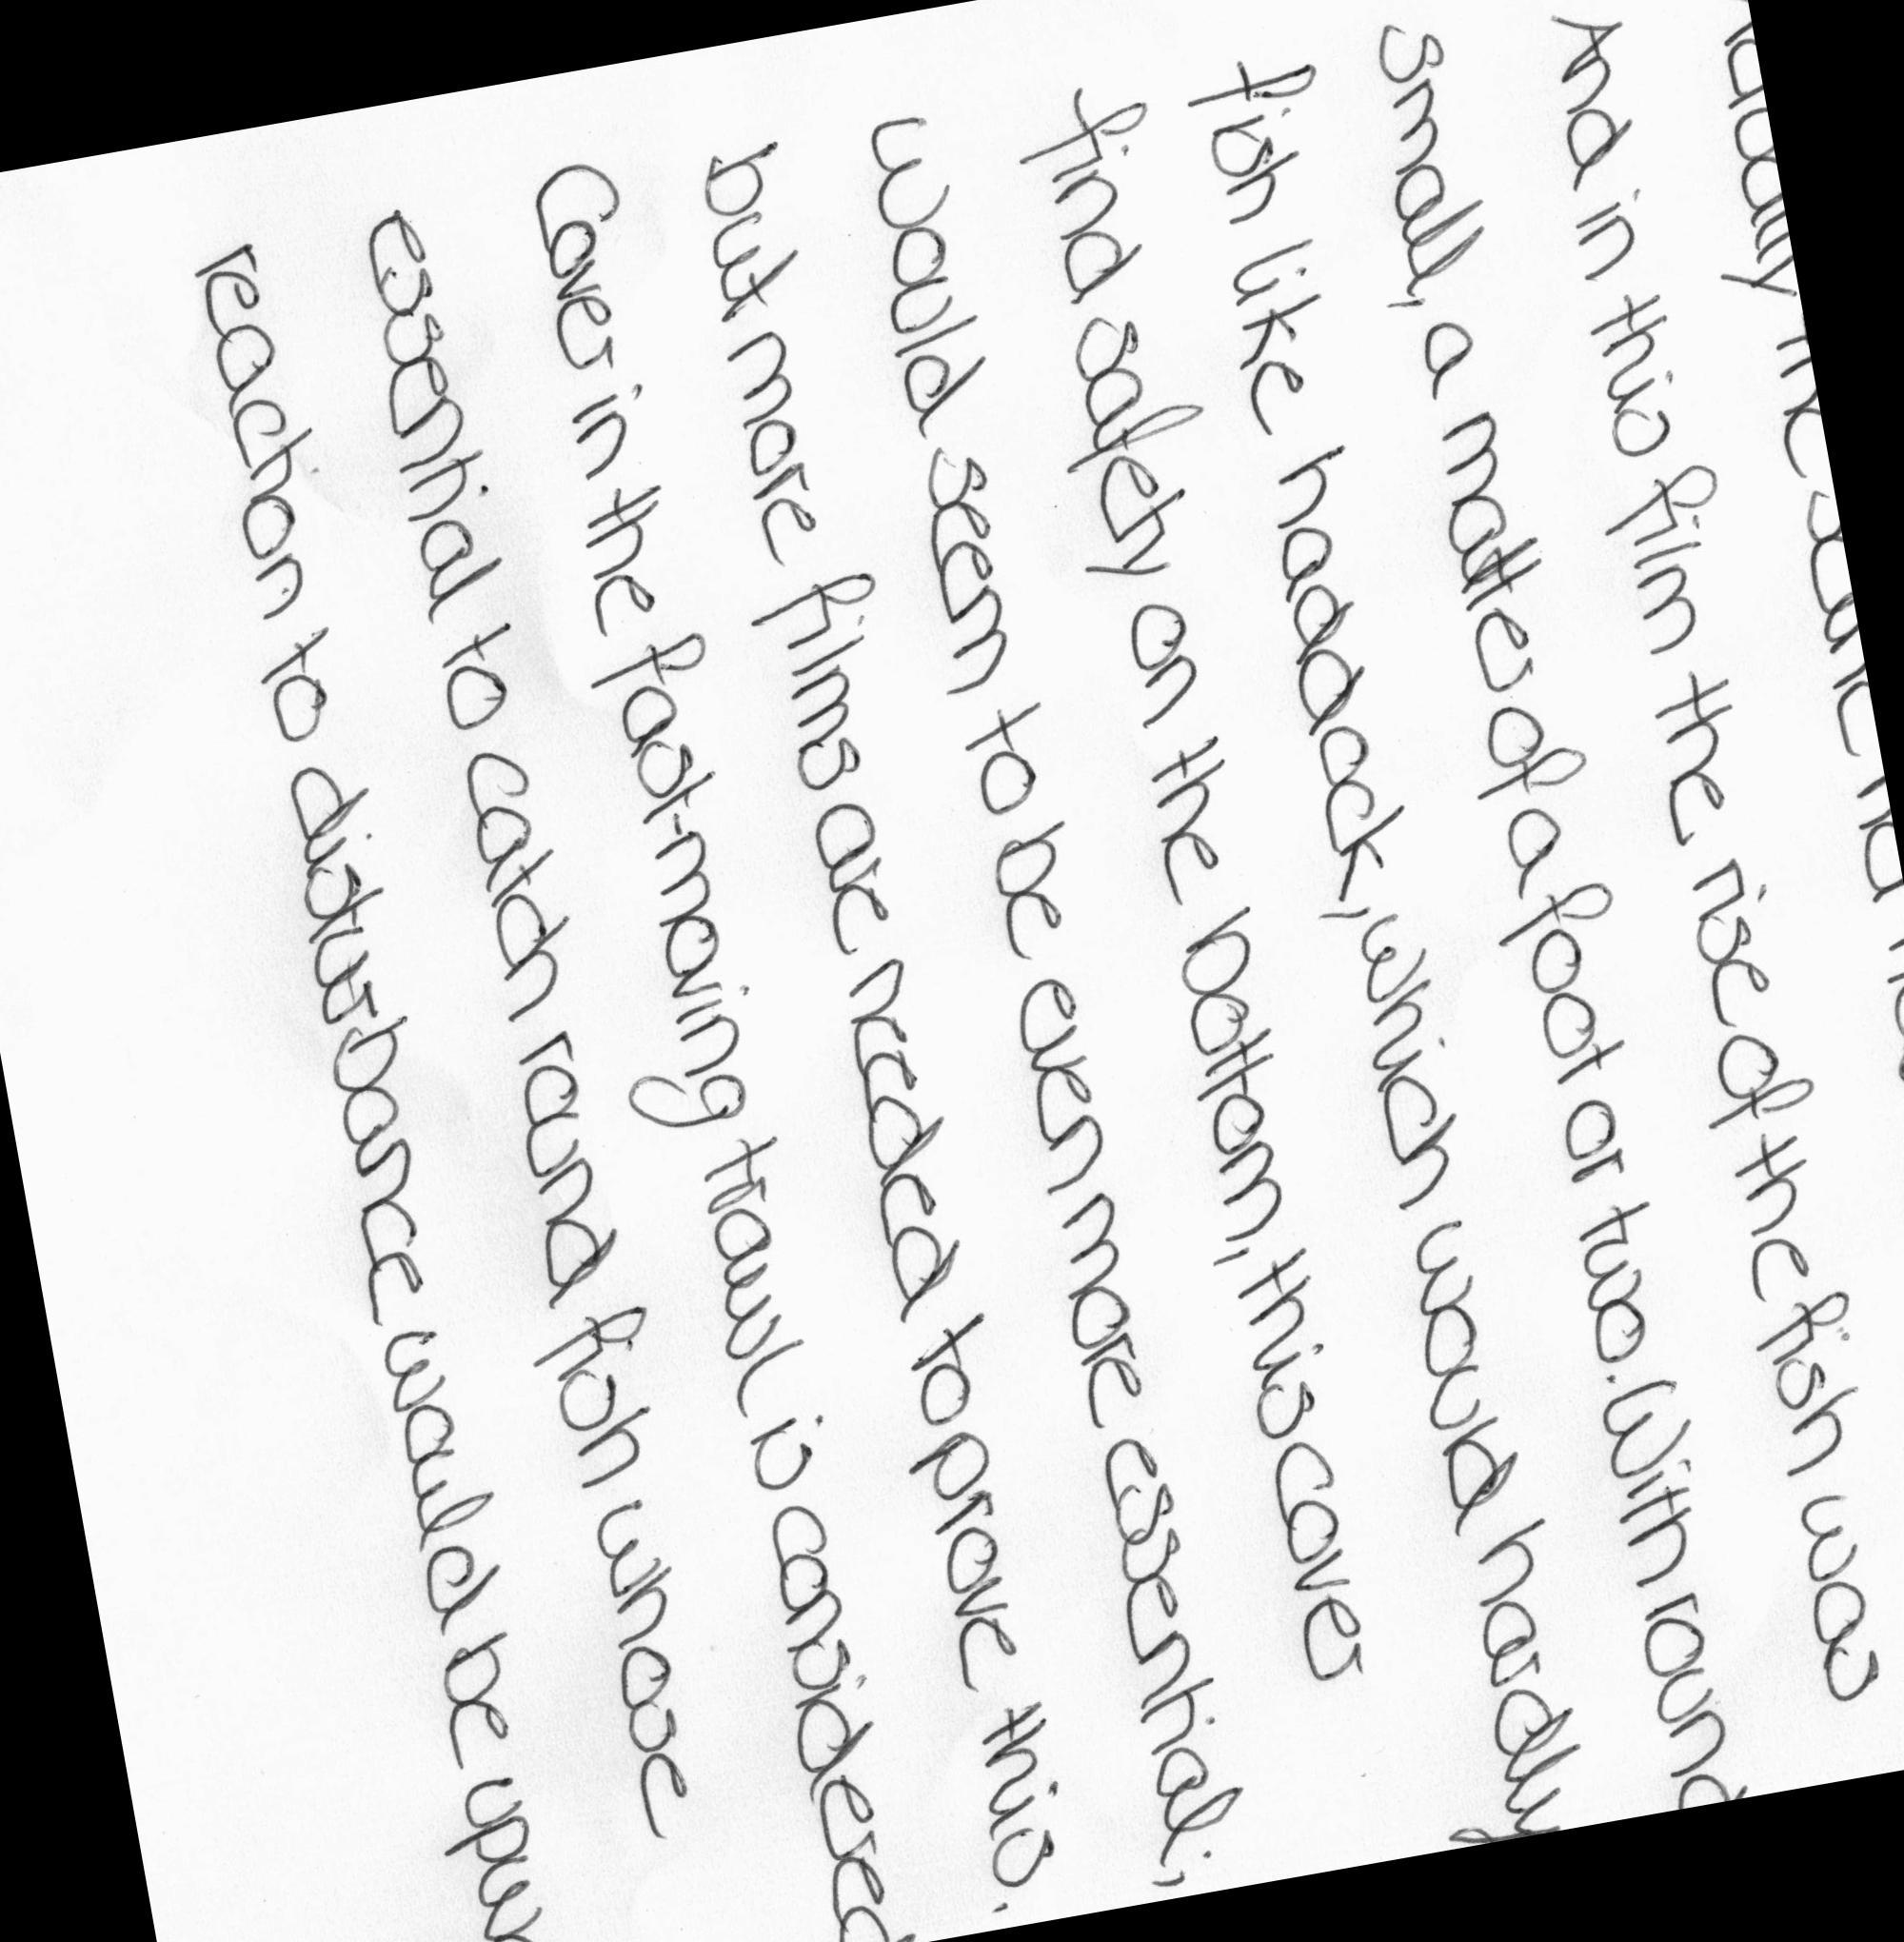 And in this film the rise of the fish was
small, a matter of a foot or two. With round
fish like haddock, which would hardly
find safety on the bottom, this cover
would seem to be even more essential;
but more films are needed to prove this.
Cover in the fast-moving trawl is considered
essential to catch round fish whose
reaction to disturbance would be